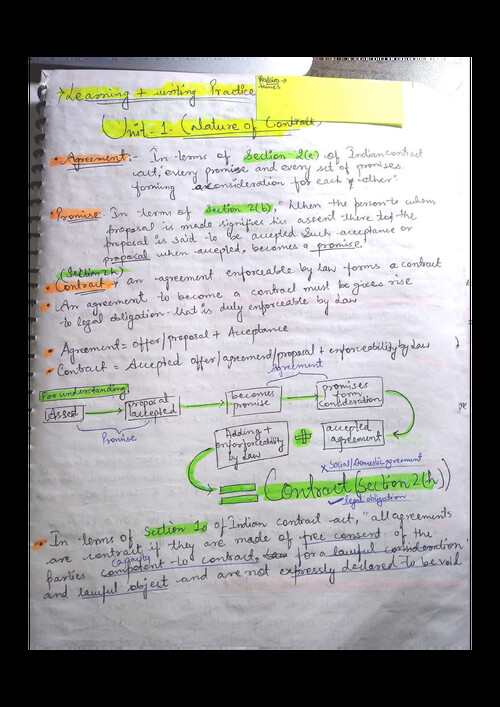 → Learning + writing Practice
Revision →
times
Unit-1. (Nature of Contract)
• Agreement:- In terms of Section 2(e) of Indian contract
act, every promise and every set of promises
forming a consideration for each other"
• Promise: In terms of section 2(b), "When the person to whom
proposal is made signifies his assent there to, the
proposal is said to be accepted. Such acceptance or
proposal when accepted, becomes a promise.
(Section 2h)
• Contract → an agreement enforceable by law forms a contract
• An agreement to become a contract must be gives rise
to legal obligation that is duly enforceable by Law
• Agreement = offer/proposal + Acceptance
• Contract = Accepted offer/agreement/proposal + enforceability by law
agreement
For understanding
Assent
proposal accepted
becomes promise
promises form consideration
Promise
Adding + enforceability by law
+
accepted agreement
x Social/Domestic agreement
= Contract (Section 2(h))
✓ legal obligation
• In terms of Section 10 of Indian contract act, "all agreements
are contract if they are made of free consent of the
capacity
parties competent to contract, for a lawful consideration
and lawful object and are not expressly declared to be void